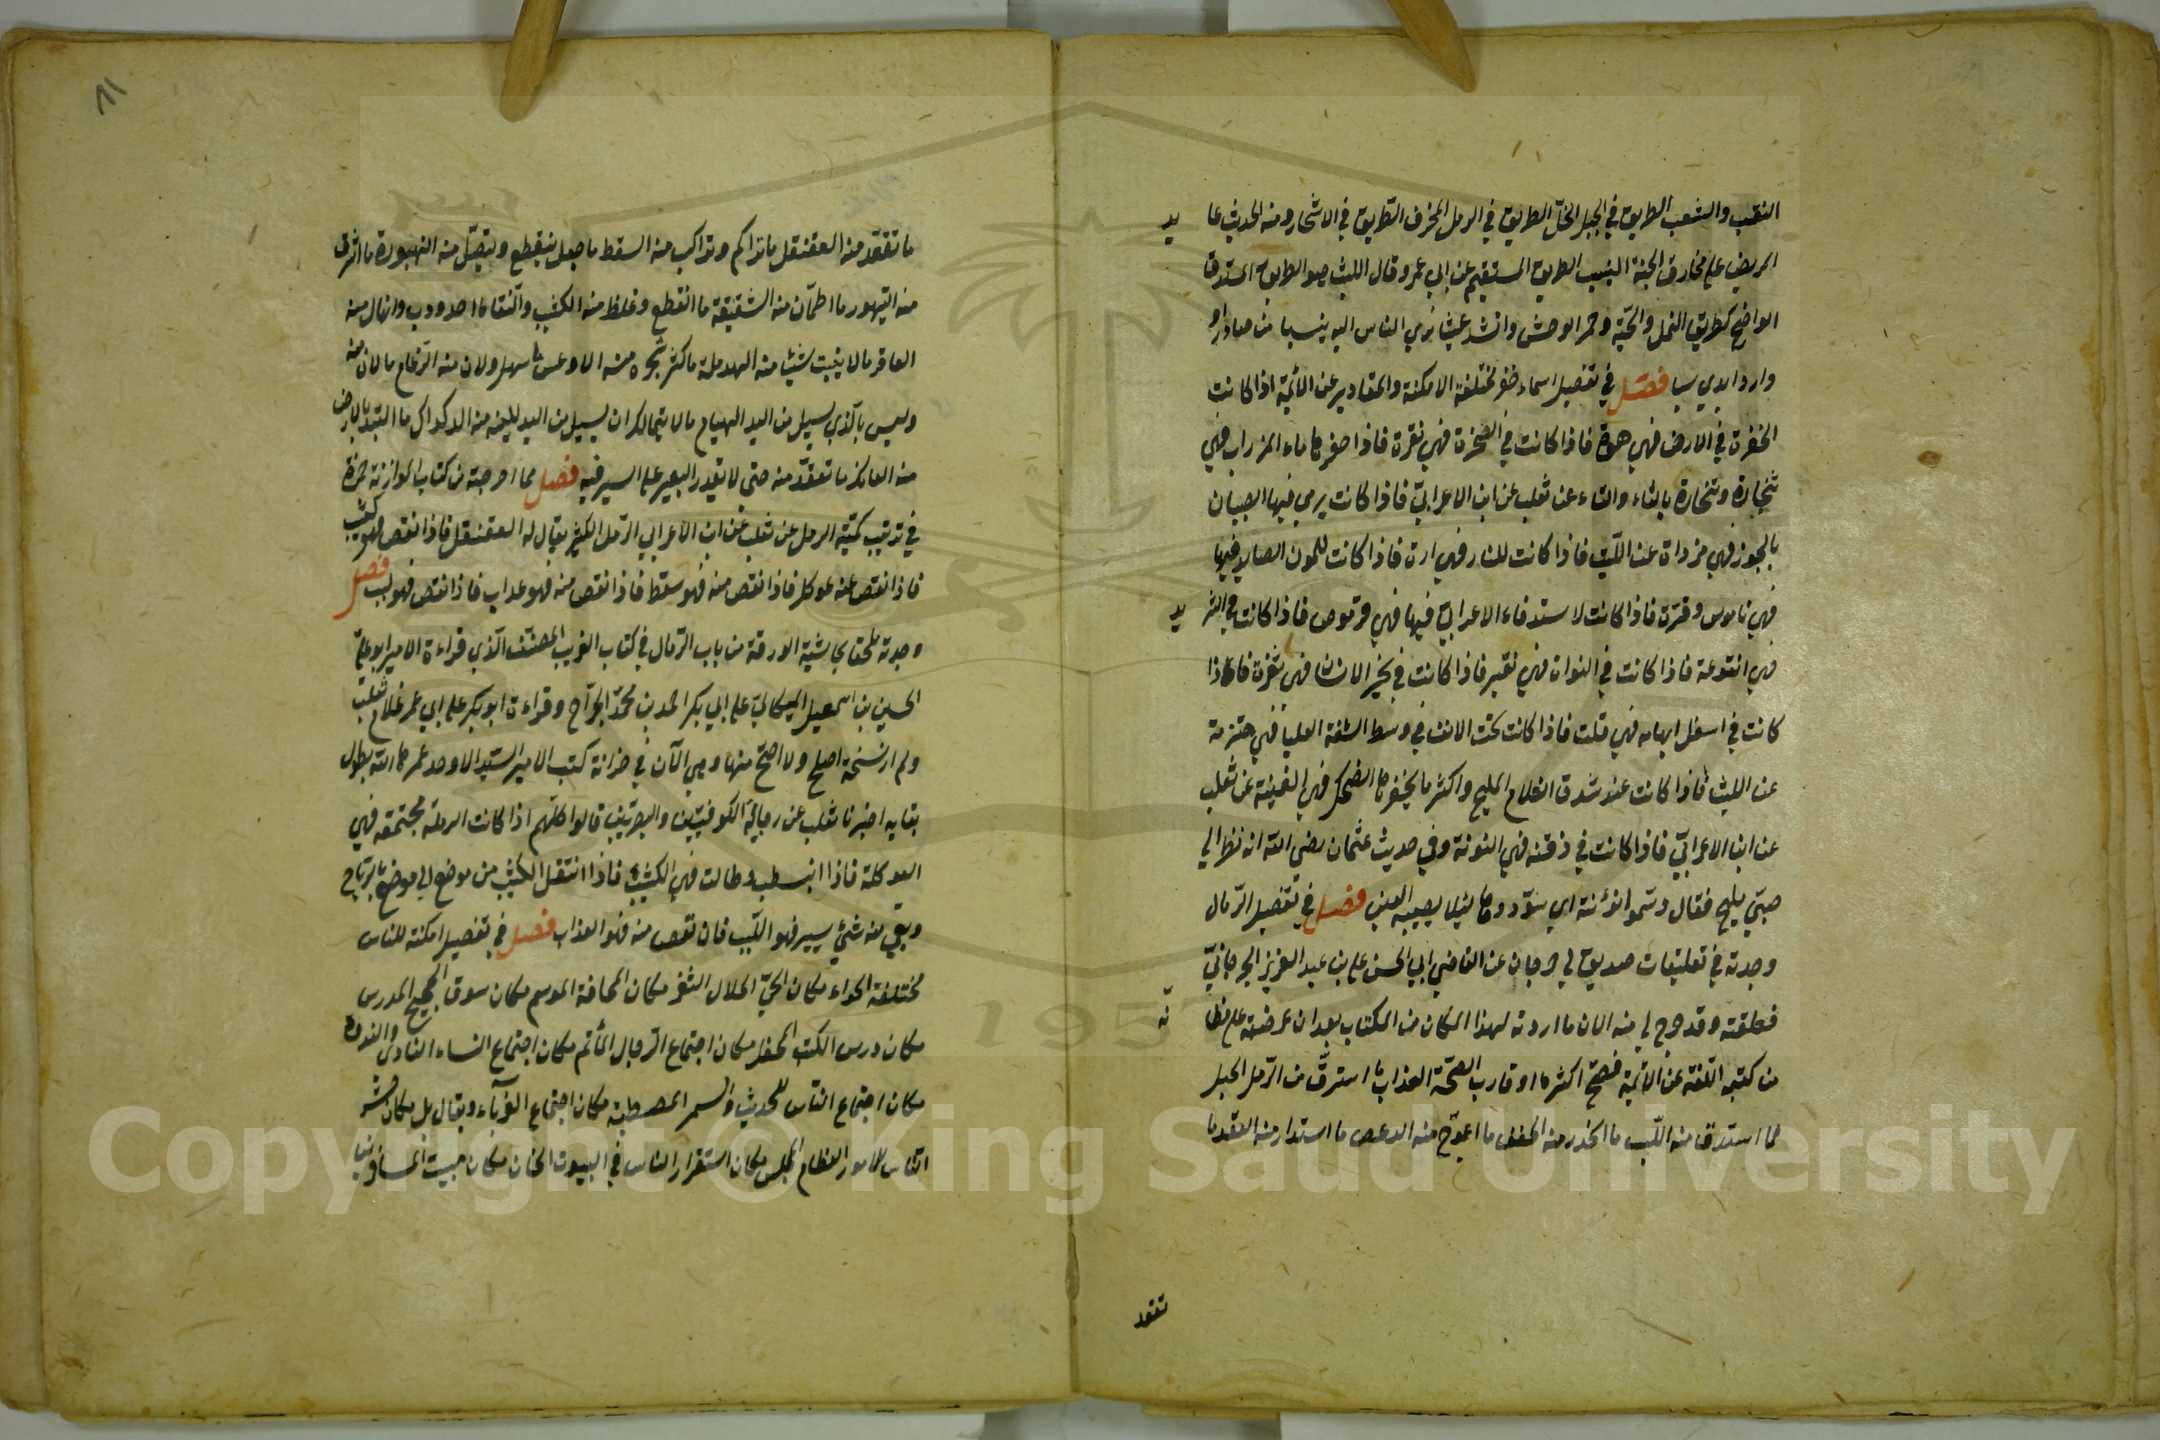 النقب والشعب الطريق في الجبل الخلّ الطريق في الرمل المخرف الطريق في الاشجار ومنه الحديث عايد
المريض على مخارف الجنة النيسب الطريق المستقيم عن ابي عمرو قال الليث هو الطريق المستدق
الواضح كطريق النمل والحيّة وحمر الوحش وانشد عينا ترى الناس اليه نيسبا من صادر او
وارد ايدي سبا فصل في تفصيل اسماء حفر مختلفة الامكنة والمقادير عن الأئمة اذا كانت
الحفرة في الارض فهي هوّة فاذا كانت في الصخرة فهي نقرة فاذا حفرها ماء المزراب فهي
ثبجارة وثجارة بالثاء والتاء عن ثعلب عن ابن الاعرابيّ فاذا كانت يرمي فيها الصبيان
بالجوز فهي مزداة عن الليث فاذا كانت للنار فهي ارة فاذا كانت لكمون الصايد فيها
فهي ناموس وقترة فاذا كانت لاستدفاء الاعرابيّ فيها فهي قرموص فاذا كانت في الثريد
فهي انقوعة فاذا كانت في النواة فهي نقير فاذا كانت في نحر الانسان فهي ثغرة فاذا
كانت في اسفل ابهامه فهي قلت فاذا كانت تحت الانف في وسط الشفة العليا فهي حثرمة
عن الليث فاذا كانت عند شدق الغلام المليح واكثر ما يحفرها الضحك فهي الغينة عن ثعلب
عن ابن الاعرابيّ فاذا كانت في ذقنه فهي النونة وفي حديث عثمان رضي الله انه نظر الى
صبيّ مليح فقال دسّموا نونته اي سوّدوها لئلا يصيبه العين فصل في تفصيل الرّمال
وجدته في تعليقات صديق لي وجان عن القاضي ابي الحسن علي بن عبد العزيز الجرجانيّ
فعلقته وقد خرج لي منه الان ما اردته لهذا المكان من الكتاب بعد ان عرضته على مظانّه
من كتب اللغة عن الأئمة فصحّ اكثره او قارب الصحّة العداب ما استرقّ من الرّمل الحبل
لما استدق منه اللّبب ما انحدر منه الحقف ما اعوجّ منه الدعص ما استدار منه العقد ما
تعقد
١١
ما تعقد منه العقنقل ما تراكم وتراكب منه السقط ما جعل ينقطع ويتصل منه النهبورة ما اشرف
منه التيهور ما اطمأن منه الشقيقة ما انقطع وغلظ منه الكثيب والنقا ما احدودب وانهال منه
العاقر ما لا ينبت شيئا منه الهدملة ما كثر شجره منه الاوعس ما سهل ولان منه الرّغام ما لان منه
وليس بالذي يسيل من اليد الهيام ما لا يتمالك ان يسيل من اليد للينه منه الدكداك ما التبد بالارض
منه العانك ما تعقد منه حتى لا يقدر البعير على السير فيه فصل مما اخرجته من كتاب الموازنة لحمزة
في ترتيب كميّة الرمل عن ثعلب عن ابن الاعرابي الرّمل الكثير يقال له العقنقل فاذا نقص فهو كثيب
فاذا نقص عنه عوكل فاذا نقص منه فهو سقط فاذا نقص منه فهو عداب فاذا نقص فهو لبب فصل
وجدته ملحقا في حاشية الورقة من باب الرّمال في كتاب الغريب المصنّف الّذي قراءة الامير ابو عليّ
الحسين بن اسمعيل الميكالي على ابي بكر احمد بن محمّد الجرّاح وقراءة ابو بكر على ابي عمر غلام ثعلب
ولم ار نسخة اصلح ولا اصحّ منها وهي الآن في خزانة كتب الامير السّيّد الاوحد عمرها الله بطول
بقايه اخبرنا ثعلب عن رجاله الكوفيّين والبصريّين قالوا كلّهم اذا كانت الرملة مجتمعة فهي
العوكلة فاذا انبسطت وطالت فهي الكثيب فاذا انتقل الكثيب من موضع الى موضع بالرّياح
وبقي منه شيئ يسير فهو اللّبب فان نقص منه فهو العذاب فصل في تفصيل امكنة للناس
مختلفة الحواء مكان الحيّ الحلال الثغر مكان المخافة الموسم مكان سوق الحجيج المدرس
مكان درس الكتب المحفل مكان اجتماع الرجال المأتم مكان اجتماع النساء النادي والندوة
مكان اجتماع الناس للحديث والسمر المصطبة مكان اجتماع الغرباء ويقال بل مكان حشو
الناس للامور العظام المجلس مكان استقرار الناس في البيوت الخان مكان مبيت المسافرين
Copyright © King Saud University
1957